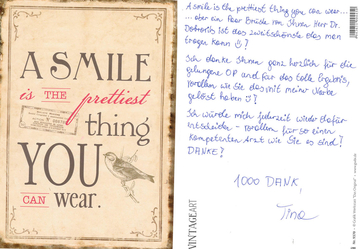 A SMILE
is THE prettiest
thing
YOU
CAN wear.
A smile is the prettiest thing you can wear...
... aber ein paar Brüste von Ihnen Herr Dr.
ist das zweitschönste das man
tragen kann
Ich danke Ihnen ganz herzlich für die
gelungene OP und für das tolle Ergebnis,
wie Sie das mit meiner Narbe
gelöst haben
Ich würde mich jederzeit wieder dafür
entscheiden - für so einen
kompetenten Arzt wie Sie es sind!
DANKE!
1000 DANK,
Tina
VINTAGE ART